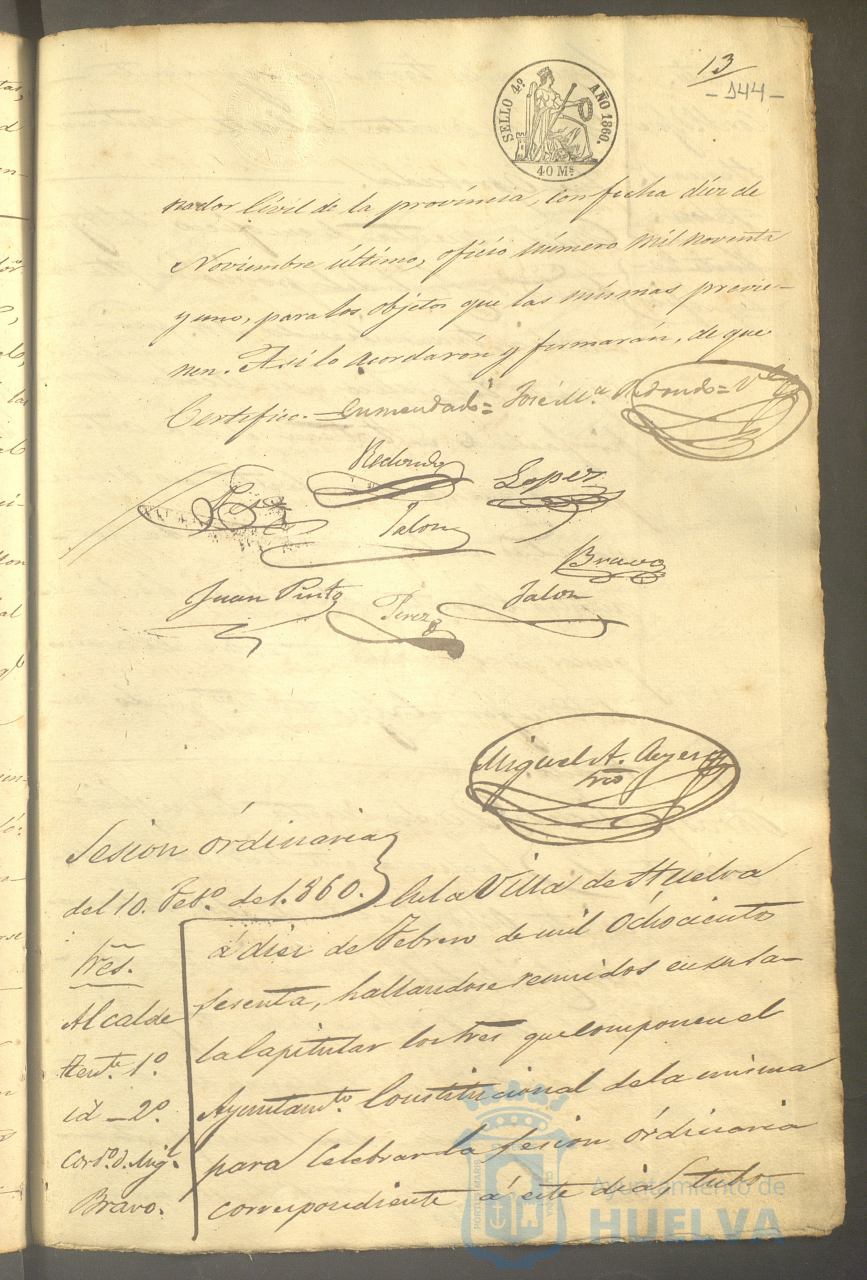 13
- 144 -
SELLO 4º AÑO 1860.
40 Ms
nador Civil de la provincia, con fecha diez de
Noviembre último, oficio número mil noventa
y uno, para los objetos que las mismas previe-
nen. Asi lo acordarón y firmarán, de que
Certifico.=Enmendado= José Mª Redondo= Vle
Redondo
Lopez
Jalon
Bravo
Juan Pinto
Perez
Jalon
Miguel A.
Srio
Sesion órdinaria
del 10. Febº de 1.860.
En la Villa de Huelva
a diez de Febrero de mil Ochocientos
sesenta, hallandose reunidos en su sa-
la Capitular los Sres que componen el
Ayuntamto Constitucional de la misma
para Celebrar la Sesion órdinaria
correspondiente á este dia Stubo
Sres.
Alcalde
Tente 1º.
id - 2º.
Cordº. D. Migl.
Bravo.
Ayuntamiento de
HUELVA